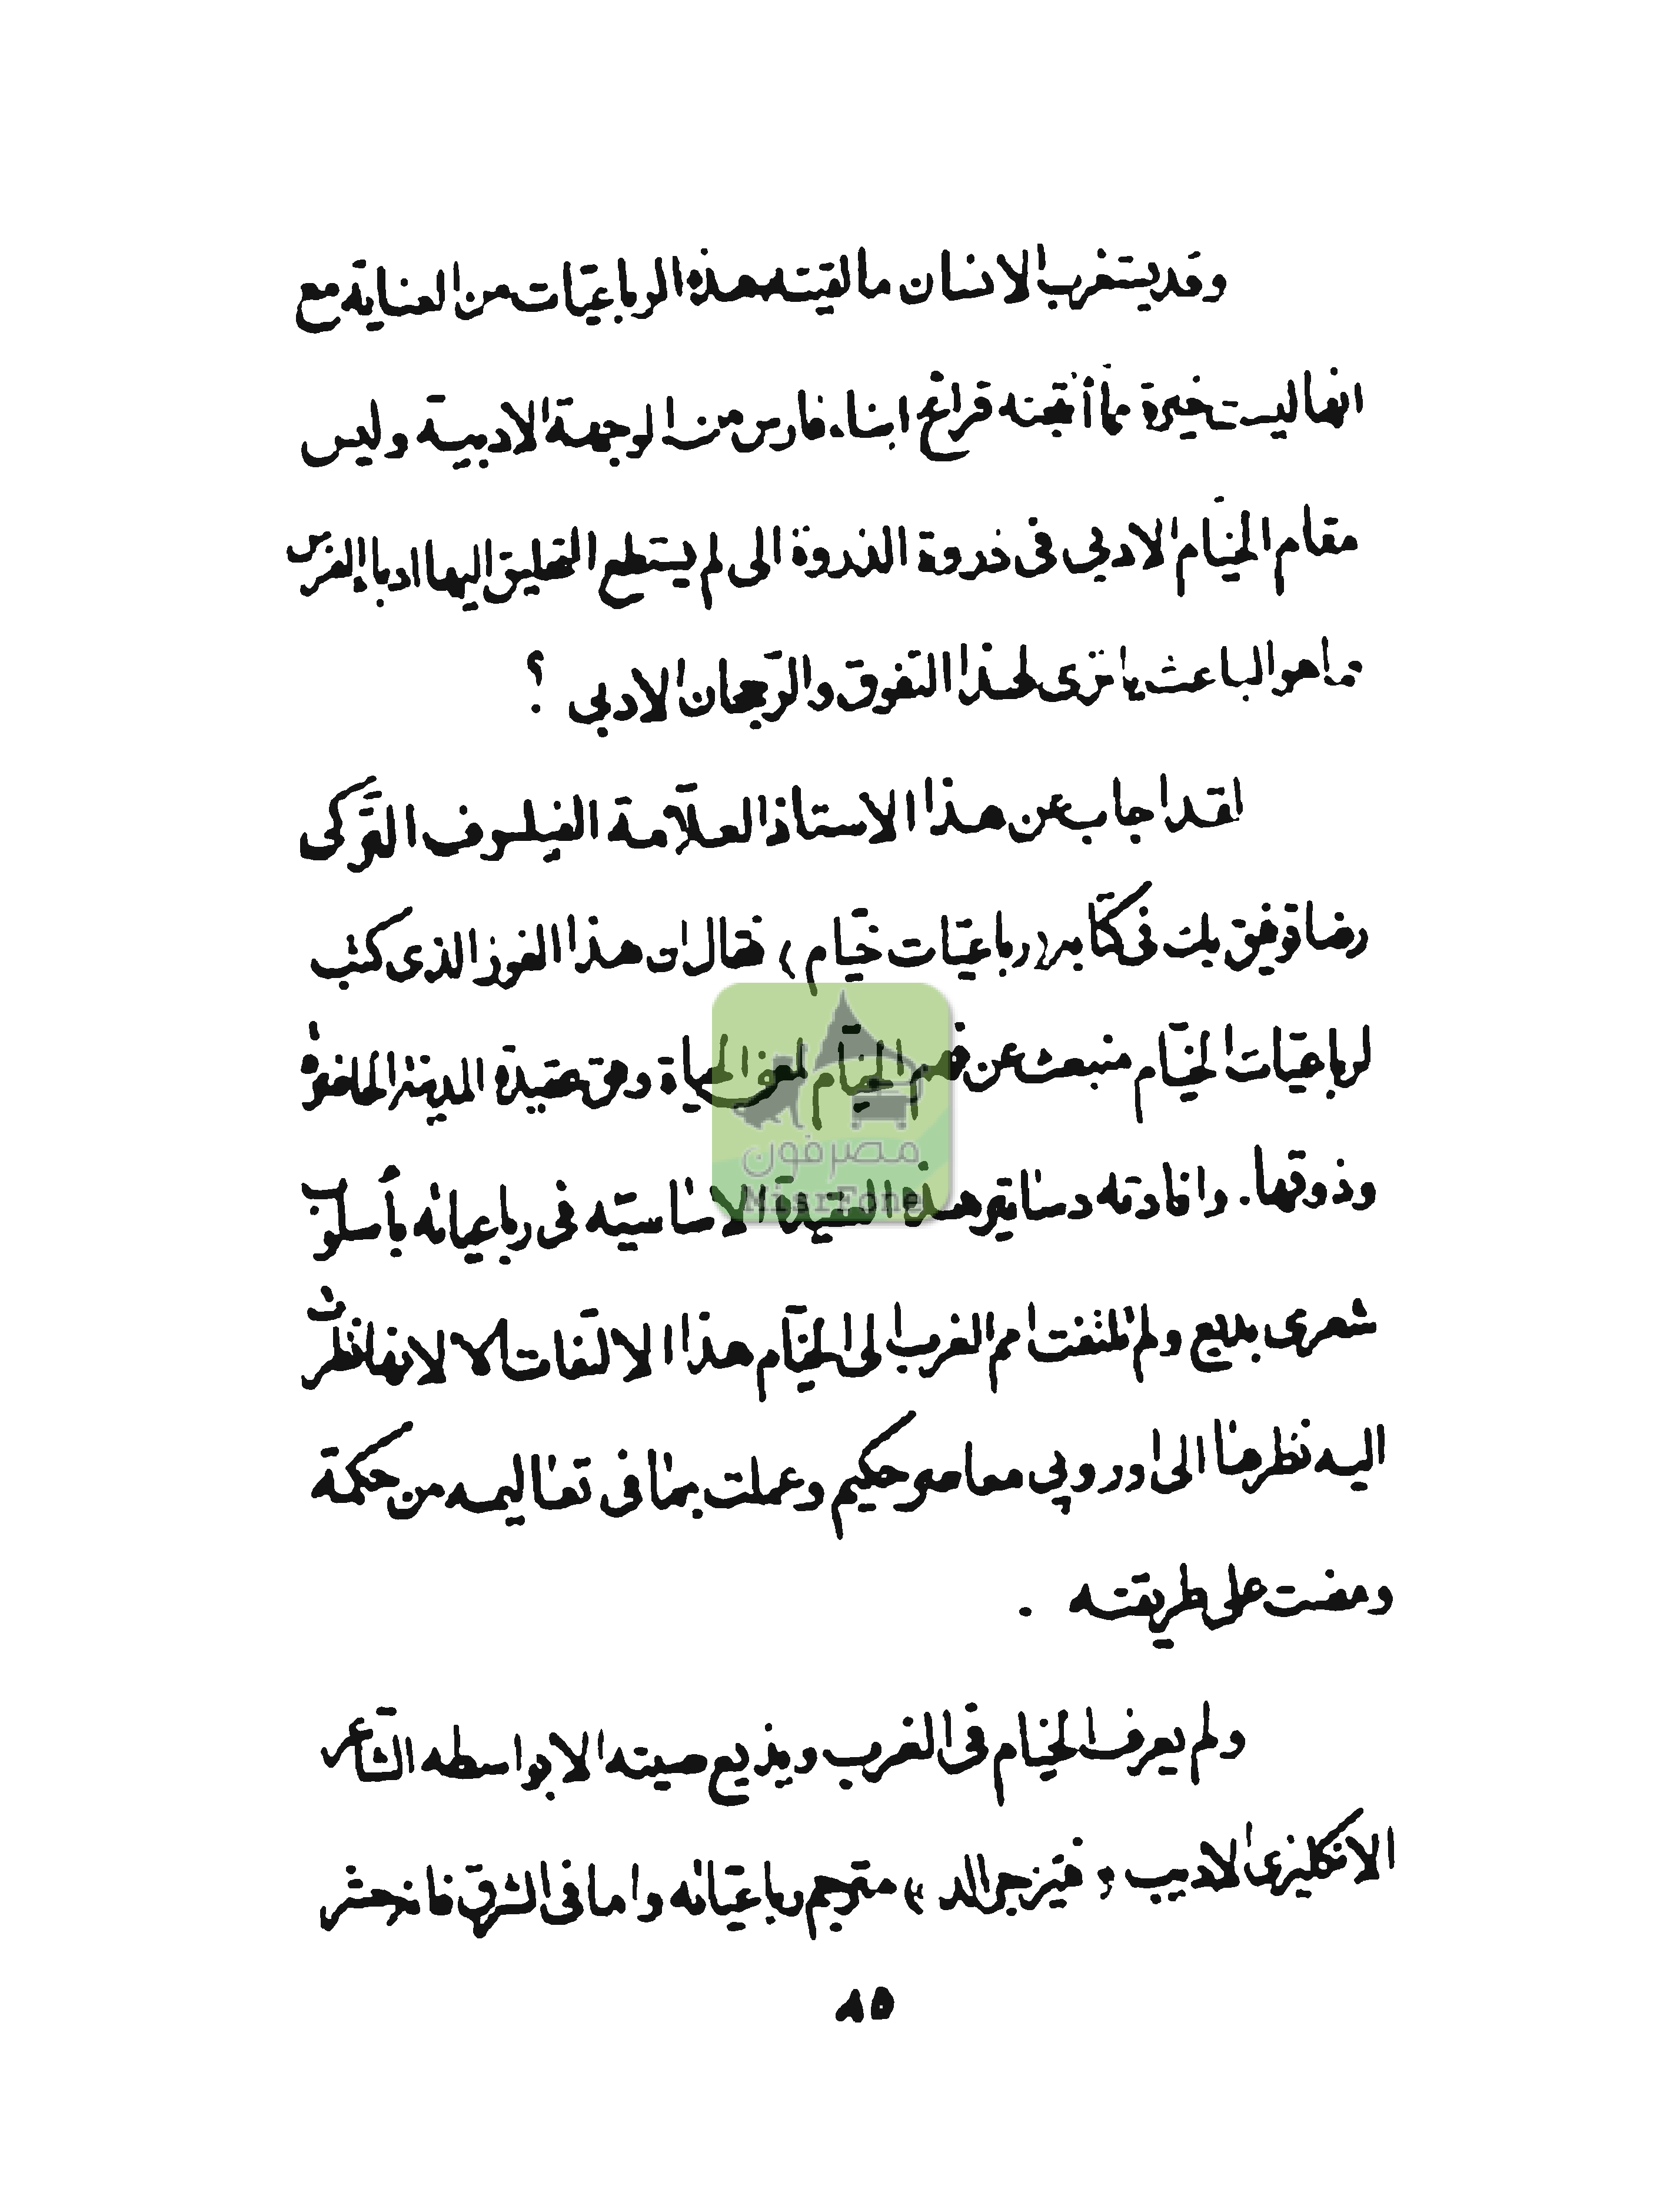 وقد يستغرب الانسان ما لقيته هذه الرباعيّات من العناية مع
انها ليست خيرة ما أنتجته قرائح ابناء فارس من الوجهة الادبية وليس
مقام الخيّام الادبي في ذروة الذروة التي لم يستطع التحليق اليها ادباء الفرس
فما هو الباعث يا ترى لهذا التفوق والرّجحان الادبي ؟
لقد اجاب عن هذا الاستاذ العلاّمة الفيلسوف التّركي
رضا توفيق بك في كتابه (رباعيّات خيّام) فقال ان هذا الفوز الذي كتب
لرباعيّات الخيّام منبعث عن فهم الخيّام لمعنى الحياة وفق عقيدة المدنية الحاضرة
وذوقها. وافادته دساتير هذه العقيدة الاساسيّه في رباعياته بأسلوب
شعري بديع ولم تلتفت امم الغرب الى الخيّام هذا الالتفات الا لانها نظرت
اليه نظرها الى اوروپي معاصر حكيم وعملت بما في تعاليمه من حكمة
ومضت على طريقته .
ولم يعرف الخيّام في الغرب ويذيع صيته الا بواسطه الشّاعر
الانكليزي الاديب « فيتزجرالد » مترجم رباعيّاته واما في الشرق فانه حشر
٨٥
مصرفون
MisrFone